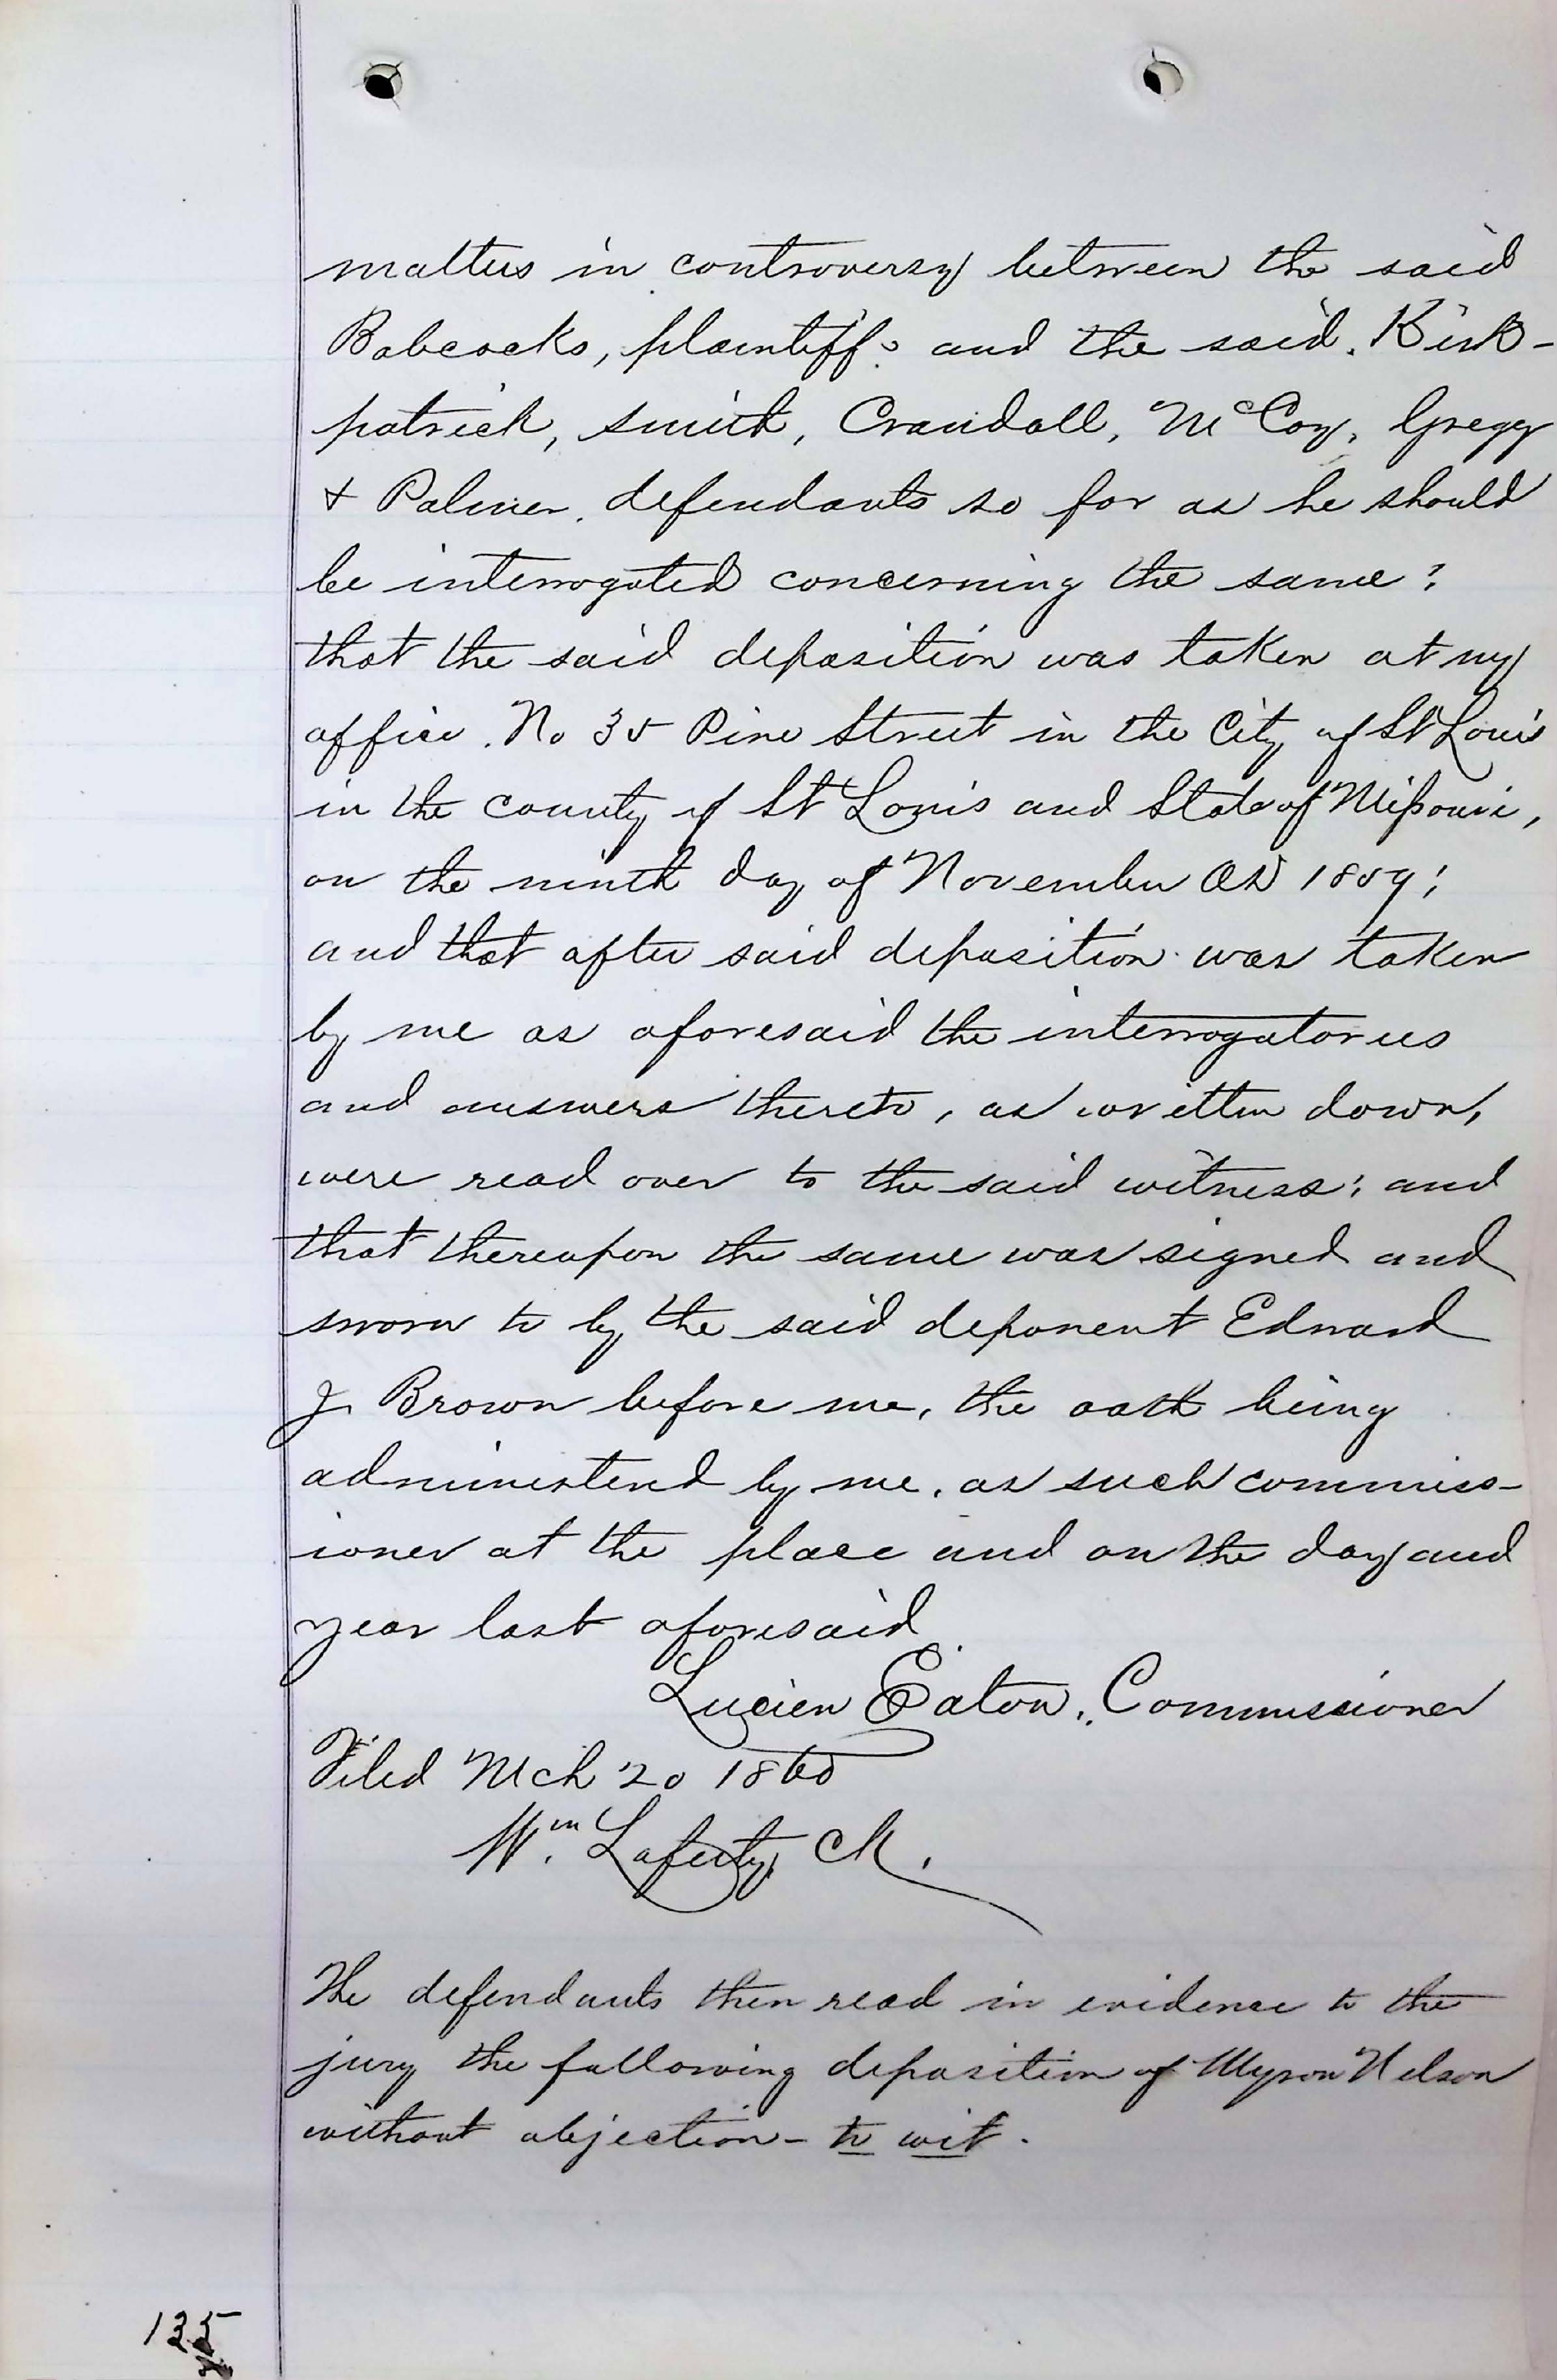 matters in controversy between the said
Babcocks, plaintiffs and the said. Kirk-
patrick, Smith, Crandall, McCoy, Gregg
& Palmer. defendants so far as he should
be interrogated concerning the same;
that the said deposition was taken at my
office. No 35 Pine Street in the City of St Louis
in the county of St Louis and State of Missouri,
on the ninth day of November AD 1859;
and that after said deposition was taken
by me as aforesaid the interrogatories
and answers thereto, as written down,
were read over to the said witness; and
that thereupon the same was signed and
sworn to by the said deponent Edward
J. Brown before me, the oath being
administered by me, as such commiss-
ioner at the place and on the day and
year last aforesaid.
Lucien Eaton, Commissioner
Filed Mch 20 1860
Wm. Laferty, Clk.
The defendants then read in evidence to the
jury the following deposition of Myron Nelson
without objection - to wit.
135